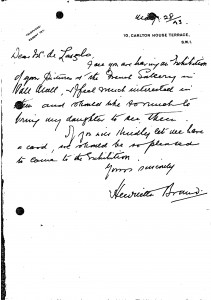 28
10. CARLTON HOUSE TERRACE,
S.W.1.
Dear Mr de Laszlo
I see you are having an Exhibition
of your Pictures at the French Gallery in
Pall Mall, I feel much interested in
and should like so much to
bring my daughter to see them
If you will kindly let me have
a card, we should be so pleased
to come to the Exhibition.
Yours sincerely
Henrietta